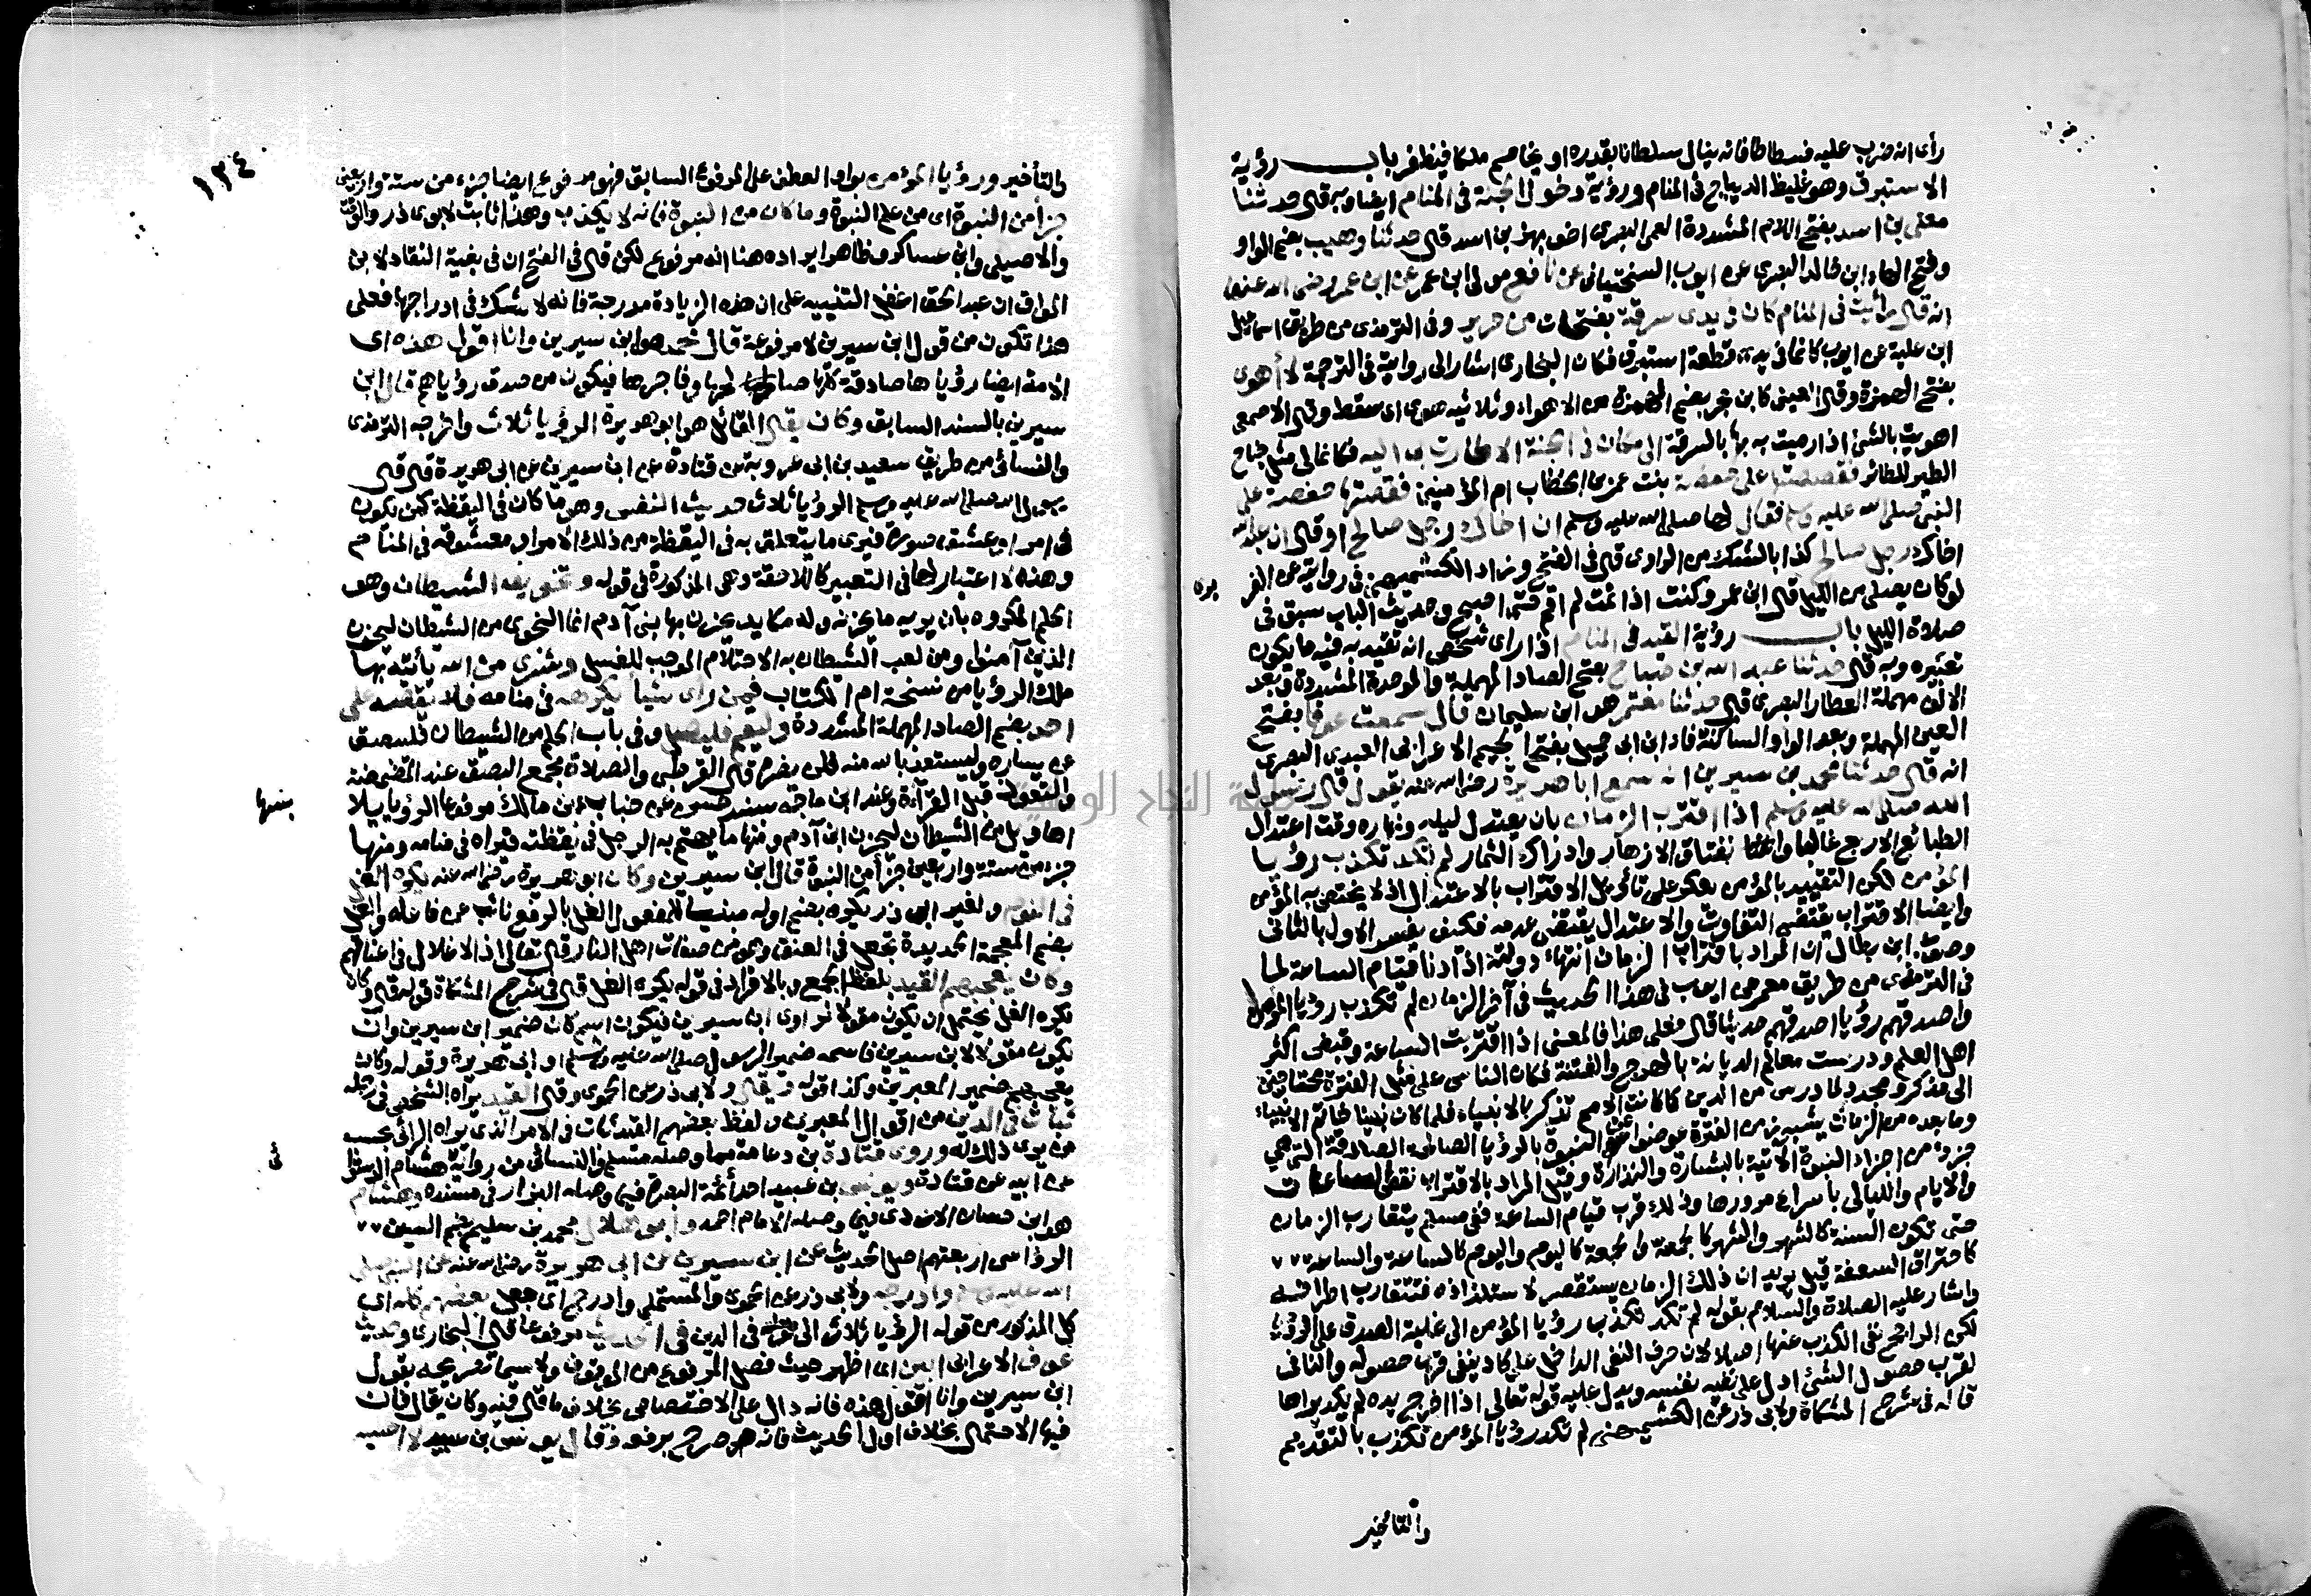 رأى انه ضرب عليه فسطاط فانه ينال سلطانا بقدره او يخاصم ملكا فيظفر به باب رؤية
الاستبرق وهو غليظ الديباج في المنام ورؤية دخول الجنة في المنام ايضا وبه قال حدثنا
معلى بن اسد بفتح اللام المشددة العمى البصرى اخو بهز بن اسد قال حدثنا وهيب بضم الواو
وفتح الهاء ابن خالد البصرى عن ايوب السختيانى عن نافع مولى ابن عمر عن ابن عمر رضى الله عنهما
انه قال رأيت في المنام كان في يدى سرقة بفتحات من حرير وفى الترمذى من طريق اسماعيل
ابن علية عن ايوب كانما في يدى قطعة استبرق فكان البخارى اشار الى روايته في الترجمة لا أهوى
بفتح الهمزة وقال العينى كابن حجر بضم الهمزة من الاهواء وثلاثيه هوى اى سقط وقال الاصمعى
اهويت بالشئ اذا رميت به بها بالسرقة الى مكان في الجنة الا طارت بى اليه فكانها لى مثل جناح
الطير للطائر فقصصتها على حفصة بنت عمر بن الخطاب ام المؤمنين فقصتها حفصة على
النبى صلى الله عليه وسلم فقال لها صلى الله عليه وسلم ان اخاك رجل صالح او قال ان عبد الله
اخاك رجل صالح كذا بالشك من الراوى قال في الفتح وزاد الكشميهنى في روايته عن الفر
برى
لو كان يصلى من الليل قال ابن عمر وكنت اذا نمت لم اقم حتى اصبح وحديث الباب سبق في
صلاة الليل باب رؤية القيد في المنام اذا رأى شخص انه تقيد به فيه ما يكون
تعبيره وبه قال حدثنا عبد الله بن صباح بفتح الصاد المهملة والموحدة المشددة وبعد
الالف مهملة العطار البصرى قال حدثنا معتمر هو ابن سليمان قال سمعت عوفا بفتح
العين المهملة وبعد الواو الساكنة فاء ابن ابى جميلة بفتح الجيم الاعرابى العبدى البصرى
انه قال حدثنا محمد بن سيرين انه سمع ابا هريرة رضى الله عنه يقول قال رسول
الله صلى الله عليه وسلم اذا اقترب الزمان بان يعتدل ليله ونهاره وقت اعتدال
الطبائع الاربع غالبا وانفتاق الازهار وادراك الثمار لم تكد تكذب رؤيا
المؤمن لكن التقييد بالمؤمن يعكر على تأويل الاقتراب بالاعتدال اذ لا يختص به المؤمن
وايضا الاقتراب يقتضى التفاوت والاعتدال يقتضى عدمه فكيف يفسر الاول بالثانى
وصوب ابن بطال ان المراد باقتراب الزمان انتهاء دولته اذا دنا قيام الساعة لما
في الترمذى من طريق معمر عن ايوب في هذا الحديث في آخر الزمان لم تكذب رؤيا المؤمن
واصدقهم رؤيا اصدقهم حديثا قال فعلى هذا فالمعنى اذا اقتربت الساعة وقبض اكثر
اهل العلم ودرست معالم الديانة بالهرج والفتنة فكان الناس على مثل الفترة محتاجين
الى مذكر ومجدد لما درس من الدين كما كانت الامم تذكر بالانبياء فلما كان نبينا خاتم الانبياء
وما بعده من الزمان يشبه زمن الفترة عوضوا عن النبوة بالرؤيا الصالحة الصادقة التى هى
جزء من اجزاء النبوة الآتية بالبشارة والنذارة وقيل المراد بالاقتراب نقص الساعات
والايام والليالى باسراع مرورها وذلك قرب قيام الساعة ففى مسلم يتقارب الزمان
حتى تكون السنة كالشهر والشهر كالجمعة والجمعة كاليوم واليوم كالساعة والساعة
كاحتراق السعفة قيل يريد ان ذلك الزمان يستقصر لاستلذاذه فتتقارب اطرافه
واشار عليه الصلاة والسلام بقوله لم تكد تكذب رؤيا المؤمن الى غلبة الصدق على الرؤيا
لكن الراجح نفى الكذب عنها اصلا لان حرف النفى الداخل على كاد ينفى قرب حصوله والنافى
لقرب حصول الشئ ادل على نفيه بنفسه ويدل عليه قوله تعالى اذا اخرج يده لم يكد يراها
قاله في شرح المشكاة ولابى ذر عن الكشميهنى لم تكد رؤيا المؤمن تكذب بالتقديم
والتأخير
١٣٤
والتأخير ورؤيا المؤمن بواو العطف على المرفوع السابق فهو مرفوع ايضا جزء من ستة واربعين
جزأ من النبوة اى من علم النبوة وما كان من النبوة فانه لا يكذب وهذا ثابت لابوى ذر والوقت
والاصيلى وابن عساكر فظاهر ايراده هنا انه مرفوع لكن قال في الفتح ان في بغية النقاد لابن
المواق ان عبد الحق اغفل التنبيه على ان هذه الزيادة مدرجة فانه لا شك في ادراجها فعلى
هذا تكون من قول ابن سيرين لا مرفوعة قال محمد هو ابن سيرين وانا اقول هذه اى
الامة ايضا رؤياها صادقة كلها صالحها وفاجرها فيكون من صدق رؤياهم قال ابن
سيرين بالسند السابق وكان يقال القائل هو ابو هريرة الرؤيا ثلاث واخرجه الترمذى
والنسائى من طريق سعيد بن ابى عروبة عن قتادة عن ابن سيرين عن ابى هريرة قال قال
رسول الله صلى الله عليه وسلم الرؤيا ثلاث حديث النفس وهو ما كان في اليقظة كمن يكون
في امر او عشق صورة فيرى ما يتعلق به في اليقظة من ذلك الامر او معشوقه في المنام
وهذه لا اعتبار لها في التعبير كاللاحقة وهى المذكورة في قوله وتخويف الشيطان وهو
الحلم المكروه بان يريه ما يحزنه وله مكايد يحزن بها بنى آدم انما النجوى من الشيطان ليحزن
الذين آمنوا ومن لعب الشيطان به الاحتلام الموجب للغسل وبشرى من الله يأتيه بها
ملك الرؤيا من نسخة ام الكتاب فمن رأى شيأ يكرهه في منامه فلا يقصه على
احد بضم الصاد المهملة المشددة وليقم فليصل وفى باب الحلم من الشيطان فليبصق
عن يساره وليستعذ بالله منه فلن يضره قال القرطبى والصلاة تجمع البصق عند المضمضة
والتعوذ قبل القراءة وعند ابن ماجه بسند حسن عن عوف بن مالك مرفوعا الرؤيا ثلاث
منها
اهاويل من الشيطان ليحزن ابن آدم ومنها ما يهتم به الرجل في يقظته فيراه في منامه ومنها
جزء من ستة واربعين جزأ من النبوة قال ابن سيرين وكان ابو هريرة رضى الله عنه يكره الغل
في النوم ولغير ابى ذر يكره بضم اوله مبنيا للمفعول الغل بالرفع نائب عن فاعله والغل
بضم المعجمة الحديدة تجعل في العنق وهو من صفات اهل النار قال تعالى اذ الاغلال في اعناقهم
وكان يعجبهم القيد بلفظ الجمع وبالافراد في قوله يكره الغل قال في شرح المشكاة قوله قال وكان
يكره الغل يحتمل ان يكون مقولا لراوى ابن سيرين فيكون اسم كان ضمير ابن سيرين وان
يكون مقولا لابن سيرين فاسمه ضمير الرسول صلى الله عليه وسلم او ابى هريرة وقوله وكان
يعجبهم ضمير المعبرين وكذا قوله ويقال ولابى ذر عن الحموى وقال القيد يراه الشخص في رجله
ثبات في الدين من اقوال المعبرين ولفظ بعضهم القيد ثبات في الامر الذى يراه الرائى بحسب
من يرى ذلك له وروى قتادة بن دعامة مما وصله مسلم والنسائى من رواية هشام الدستوا
ئى
عن ابيه عن قتادة ويونس بن عبيد احد ائمة البصرة فيما وصله البزار في مسنده وهشام
هو ابن حسان الازدى فيما وصله الامام احمد وابو هلال محمد بن سليم بضم السين
الراسبى اربعتهم اصل الحديث عن ابن سيرين عن ابى هريرة رضى الله عنه عن النبى صلى
الله عليه وسلم وادرجه ولابى ذر عن الحموى والمستملى وادرج اى جعل بعضهم كله اى
كل المذكور من قوله الرؤيا ثلاث الى قوله في الدين في الحديث مرفوعا قال البخارى وحديث
عوف الاعرابى ابين اى اظهر حيث فصل المرفوع من الموقوف ولا سيما تصريحه بقول
ابن سيرين وانا اقول هذه فانه دال على الاختصاص بخلاف ما قال فيه وكان يقال فان
فيها الاحتمال بخلاف اول الحديث فانه صرح برفعه وقال يونس بن عبيد لا احسبه